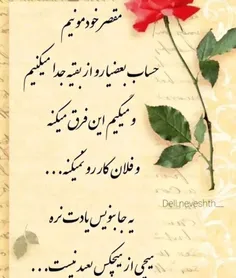 مقصر خودمونیم
حساب بعضیا رو از بقیه جدا میکنیم
و میگیم این فرق میکنه
و فلان کار رو نمیکنه...
یه جا بنویس یادت نره
هیچی از هیچکس بعید نیست...
Deli.neveshth__